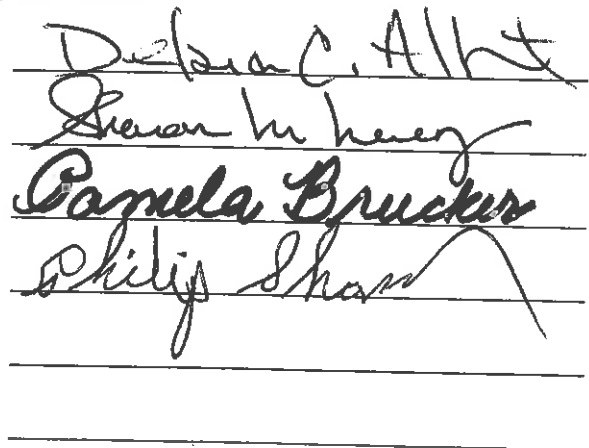 Debra C. Albit
Sharon M
Pamela Brucker
Philip Shaw